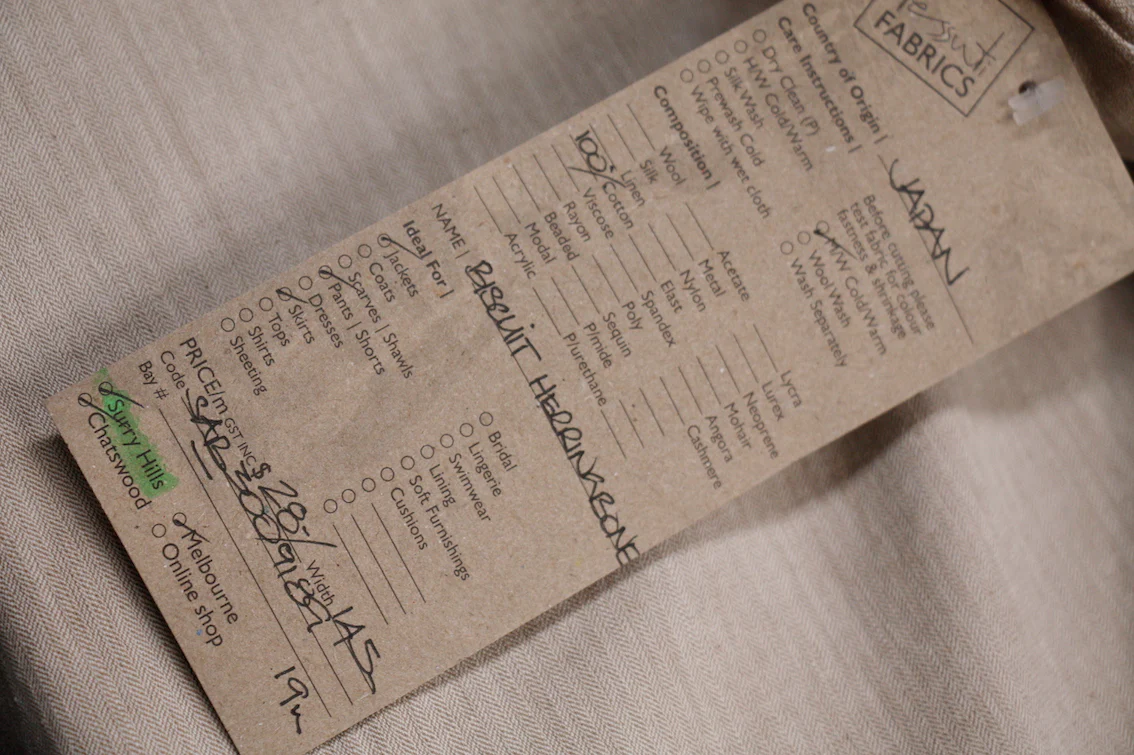 Tessuti
FABRICS
Country of Origin | JAPAN
Care Instructions |
Dry Clean (P)
H/W Cold/Warm
Silk Wash
Prewash Cold
Wipe with wet cloth
Before cutting please
test fabric for colour
fastness & shrinkage
H/W Cold/Warm
Wool Wash
Wash Separately
Composition |
Wool
Silk
Linen
100% Cotton
Viscose
Rayon
Beaded
Modal
Acrylic
Acetate
Metal
Nylon
Elast
Spandex
Poly
Sequin
P/mide
P/urethane
Lycra
Lurex
Neoprene
Mohair
Angora
Cashmere
NAME | BISCUIT HERRINGBONE
Ideal For |
Jackets
Coats
Scarves | Shawls
Pants | Shorts
Dresses
Skirts
Tops
Shirts
Sheeting
Bridal
Lingerie
Swimwear
Lining
Soft Furnishings
Cushions
PRICE/m GST INC $ 28- Width 145
Code
Bay # 19m
Surry Hills
Chatswood
Melbourne
Online shop